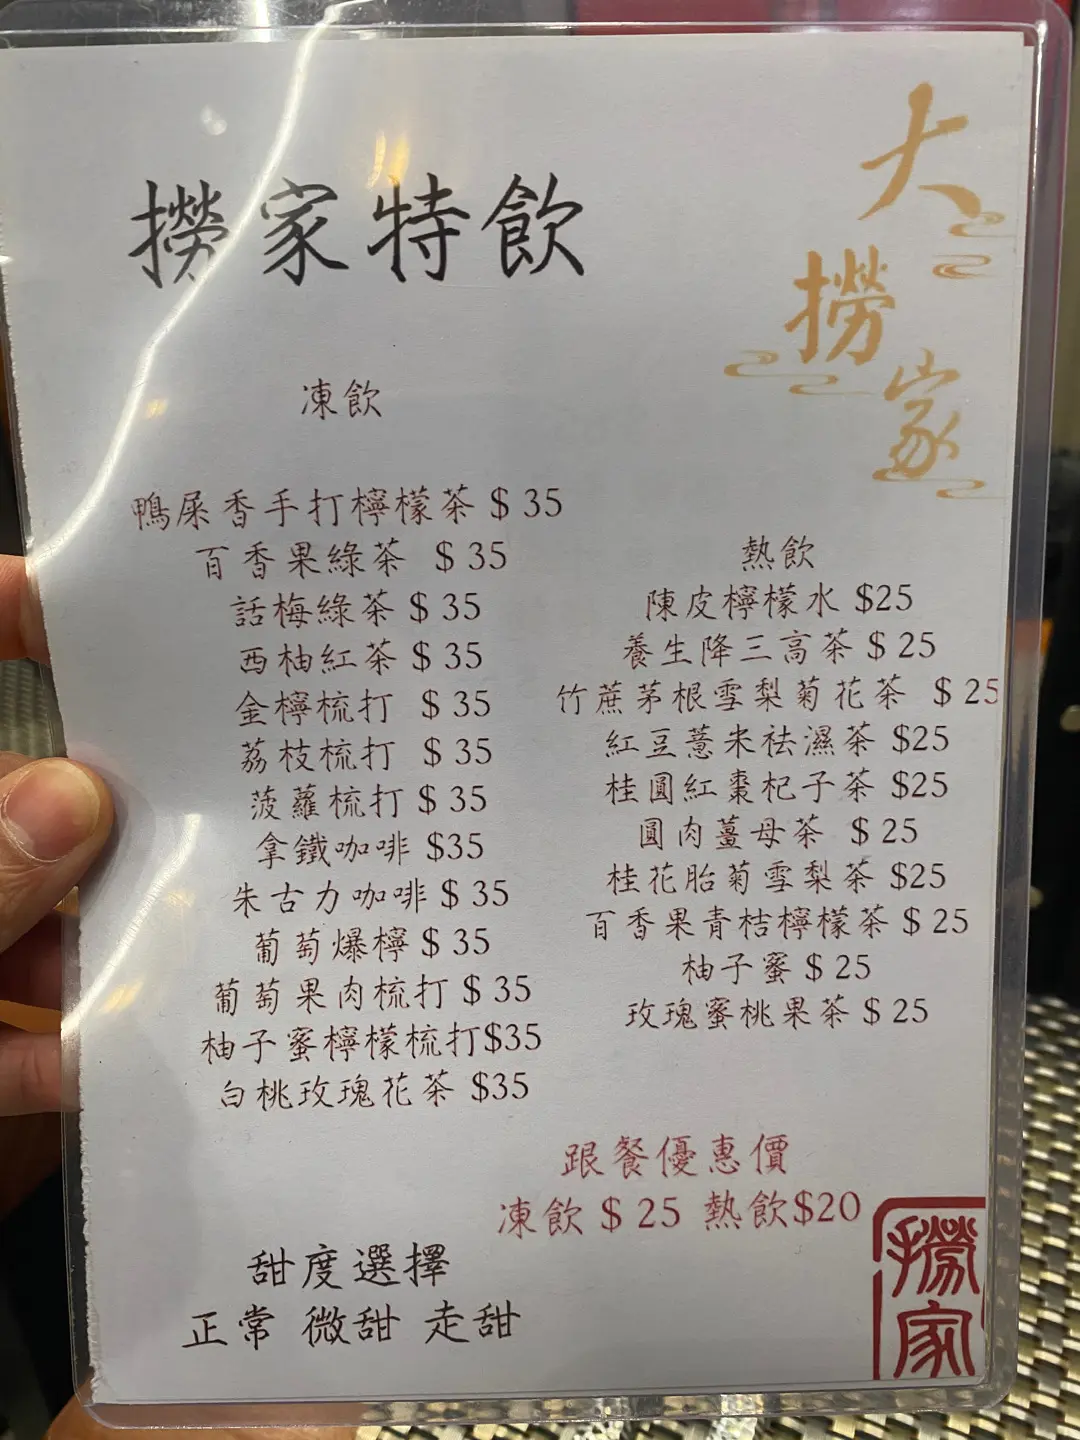 大
撈
家
撈家特飲
凍飲
鴨屎香手打檸檬茶 $ 35
百香果綠茶 $ 35
話梅綠茶 $ 35
西柚紅茶 $ 35
金檸梳打 $ 35
荔枝梳打 $ 35
菠蘿梳打 $ 35
拿鐵咖啡 $35
朱古力咖啡 $ 35
葡萄爆檸 $ 35
葡萄果肉梳打 $ 35
柚子蜜檸檬梳打$35
白桃玫瑰花茶 $35
熱飲
陳皮檸檬水 $25
養生降三高茶 $ 25
竹蔗茅根雪梨菊花茶 $ 25
紅豆薏米祛濕茶 $25
桂圓紅棗杞子茶 $25
圓肉薑母茶 $ 25
桂花胎菊雪梨茶 $25
百香果青桔檸檬茶 $ 25
柚子蜜 $ 25
玫瑰蜜桃果茶 $ 25
跟餐優惠價
凍飲 $ 25 熱飲$20
甜度選擇
正常 微甜 走甜
撈
家